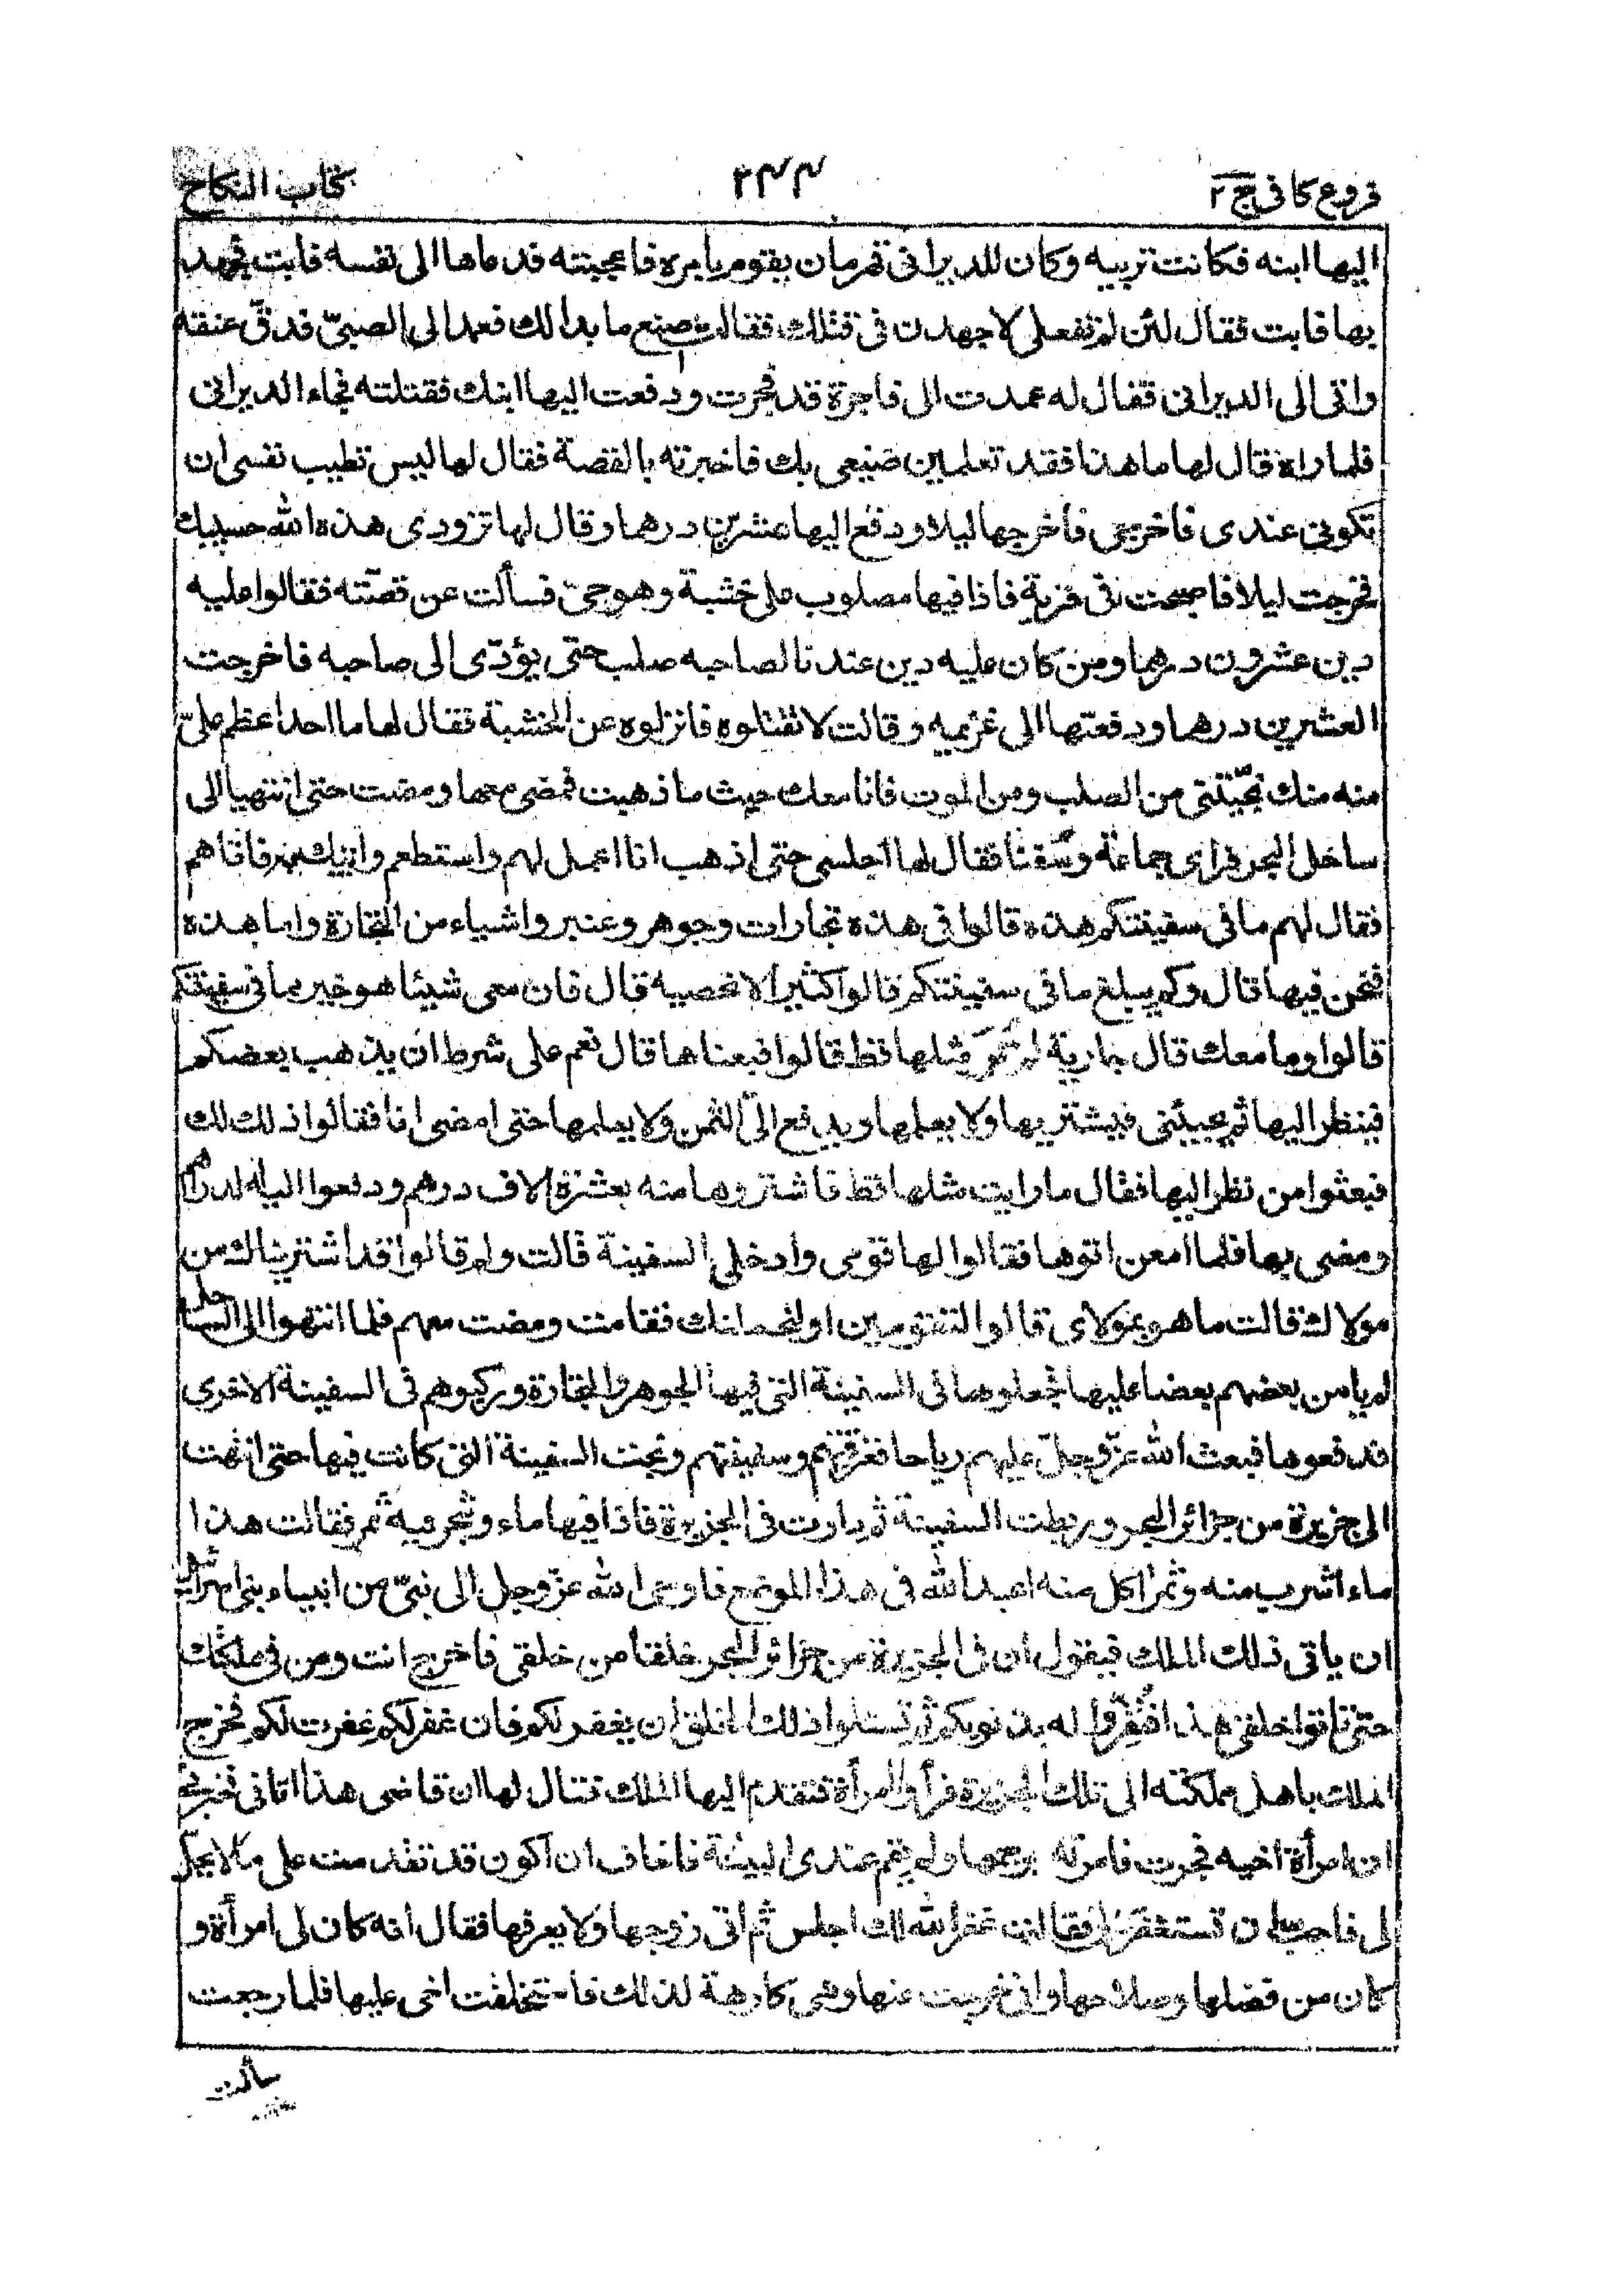 فروع كافى ج ٢
٢٤٤
كتاب النكاح
اليها ابنه فكانت تربيه وكان للديرانى قهرمان يقوم بامره فاعجبته فدعاها الى نفسه فابت فجهد
بها فابت فقال لئن لم تفعلى لاجهدن فى قتلك فقالت اصنع ما بدا لك فعمد الى الصبىّ فدقّ عنقه
واتى الى الديرانى فقال له عمدت الى فاجرة قد فجرت ودفعت اليها ابنك فقتلته فجاء الديرانى
فلما راه قال لها ما هذا فقد تعلمين صنيعى بك فاخبرته بالقصة فقال لها ليس تطيب نفسى ان
تكونى عندى فاخرجى فاخرجها ليلا ودفع اليها عشرين درهما وقال لها تزودى هذه الله حسبك
فخرجت ليلا فاصبحت فى قرية فاذا فيها مصلوب على خشبة وهو حىّ فسألت عن قصّته فقالوا عليه
دين عشرون درهما ومن كان عليه دين عندنا لصاحبه صلب حتى يؤدّى الى صاحبه فاخرجت
العشرين درهما ودفعتها الى غريمه وقالت لا تقتلوه فانزلوه عن الخشبة فقال لها ما احد اعظم علىّ
منه منك نجّيتنى من الصلب ومن الموت فانا معك حيث ما ذهبت فمضى معها ومضت حتى انتهيا الى
ساحل البحر فراى جماعة وسفنا فقال لها اجلسى حتى اذهب انا اعمل لهم واستطعم واتيك به فاتاهم
فقال لهم ما فى سفينتكم هذه قالوا فى هذه تجارات وجوهر وعنبر واشياء من التجارة واما هذه
فنحن فيها قال وكم يبلغ ما فى سفينتكم قالوا كثيرا لا نحصيه قال فان معى شيئا هو خير مما فى سفينتكم
قالوا وما معك قال جارية لم تروا مثلها قط قالوا فبعناها قال نعم على شرط ان يذهب بعضكم
فينظر اليها ثم يجيئنى فيشتريها ولا يعلمها ويدفع الىّ الثمن ولا يعلمها حتى امضى انا فقالوا ذلك لك
فبعثوا من نظر اليها فقال ما رايت مثلها قط فاشتروها منه بعشرة الاف درهم ودفعوا اليه الدراهم
ومضى بها فلما امعن اتوها فقالوا لها قومى وادخلى السفينة قالت ولم قالوا قد اشتريناك من
مولاك قالت ما هو بمولاى قالوا لتقومين او لنحملنك فقامت ومضت معهم فلما انتهوا الى الساحل
لم يامن بعضهم بعضا عليها فجعلوها فى السفينة التى فيها الجوهر والتجارة وركبوهم فى السفينة الاخرى
فدفعوها فبعث الله عزّ وجلّ عليهم رياحا فغرّقتهم وسفينتهم ونجت السفينة التى كانت فيها حتى انتهت
الى جزيرة من جزائر البحر وربطت السفينة ثم دارت فى الجزيرة فاذا فيها ماء وشجر فيه ثمر فقالت هذا
ماء اشرب منه وثمر اكل منه اعبد الله فى هذا الموضع فاوحى الله عزّ وجل الى نبىّ من انبياء بنى اسرائيل
ان ياتى ذلك الملك فيقول ان فى الجزيرة من جزائر البحر خلقا من خلقى فاخرج انت ومن فى مملكتك
حتى تاتوا خلقى هذا فتقرّوا له بذنوبكم ثم تسئلوا ذلك الخلق ان يغفر لكم فان غفر لكم غفرت لكم فخرج
الملك باهل مملكته الى تلك الجزيرة فرأوا امرأة فتقدم اليها الملك فقال لها ان قاضى هذا اتانى فخبرنى
ان امرأة اخيه فجرت فامرته برجمها ولم يقم عندى البينة فاخاف ان اكون قد تقدمت على ما لا يحلّ
لى فاحب ان تستغفرى لى فقالت غفر الله لك اجلس ثم اتى زوجها ولا يعرفها فقال انه كان لى امرأة و
كان من فضلها وصلاحها وانى خرجت عنها وهى كارهة لذلك فاستخلفت اخى عليها فلما رجعت
سألت